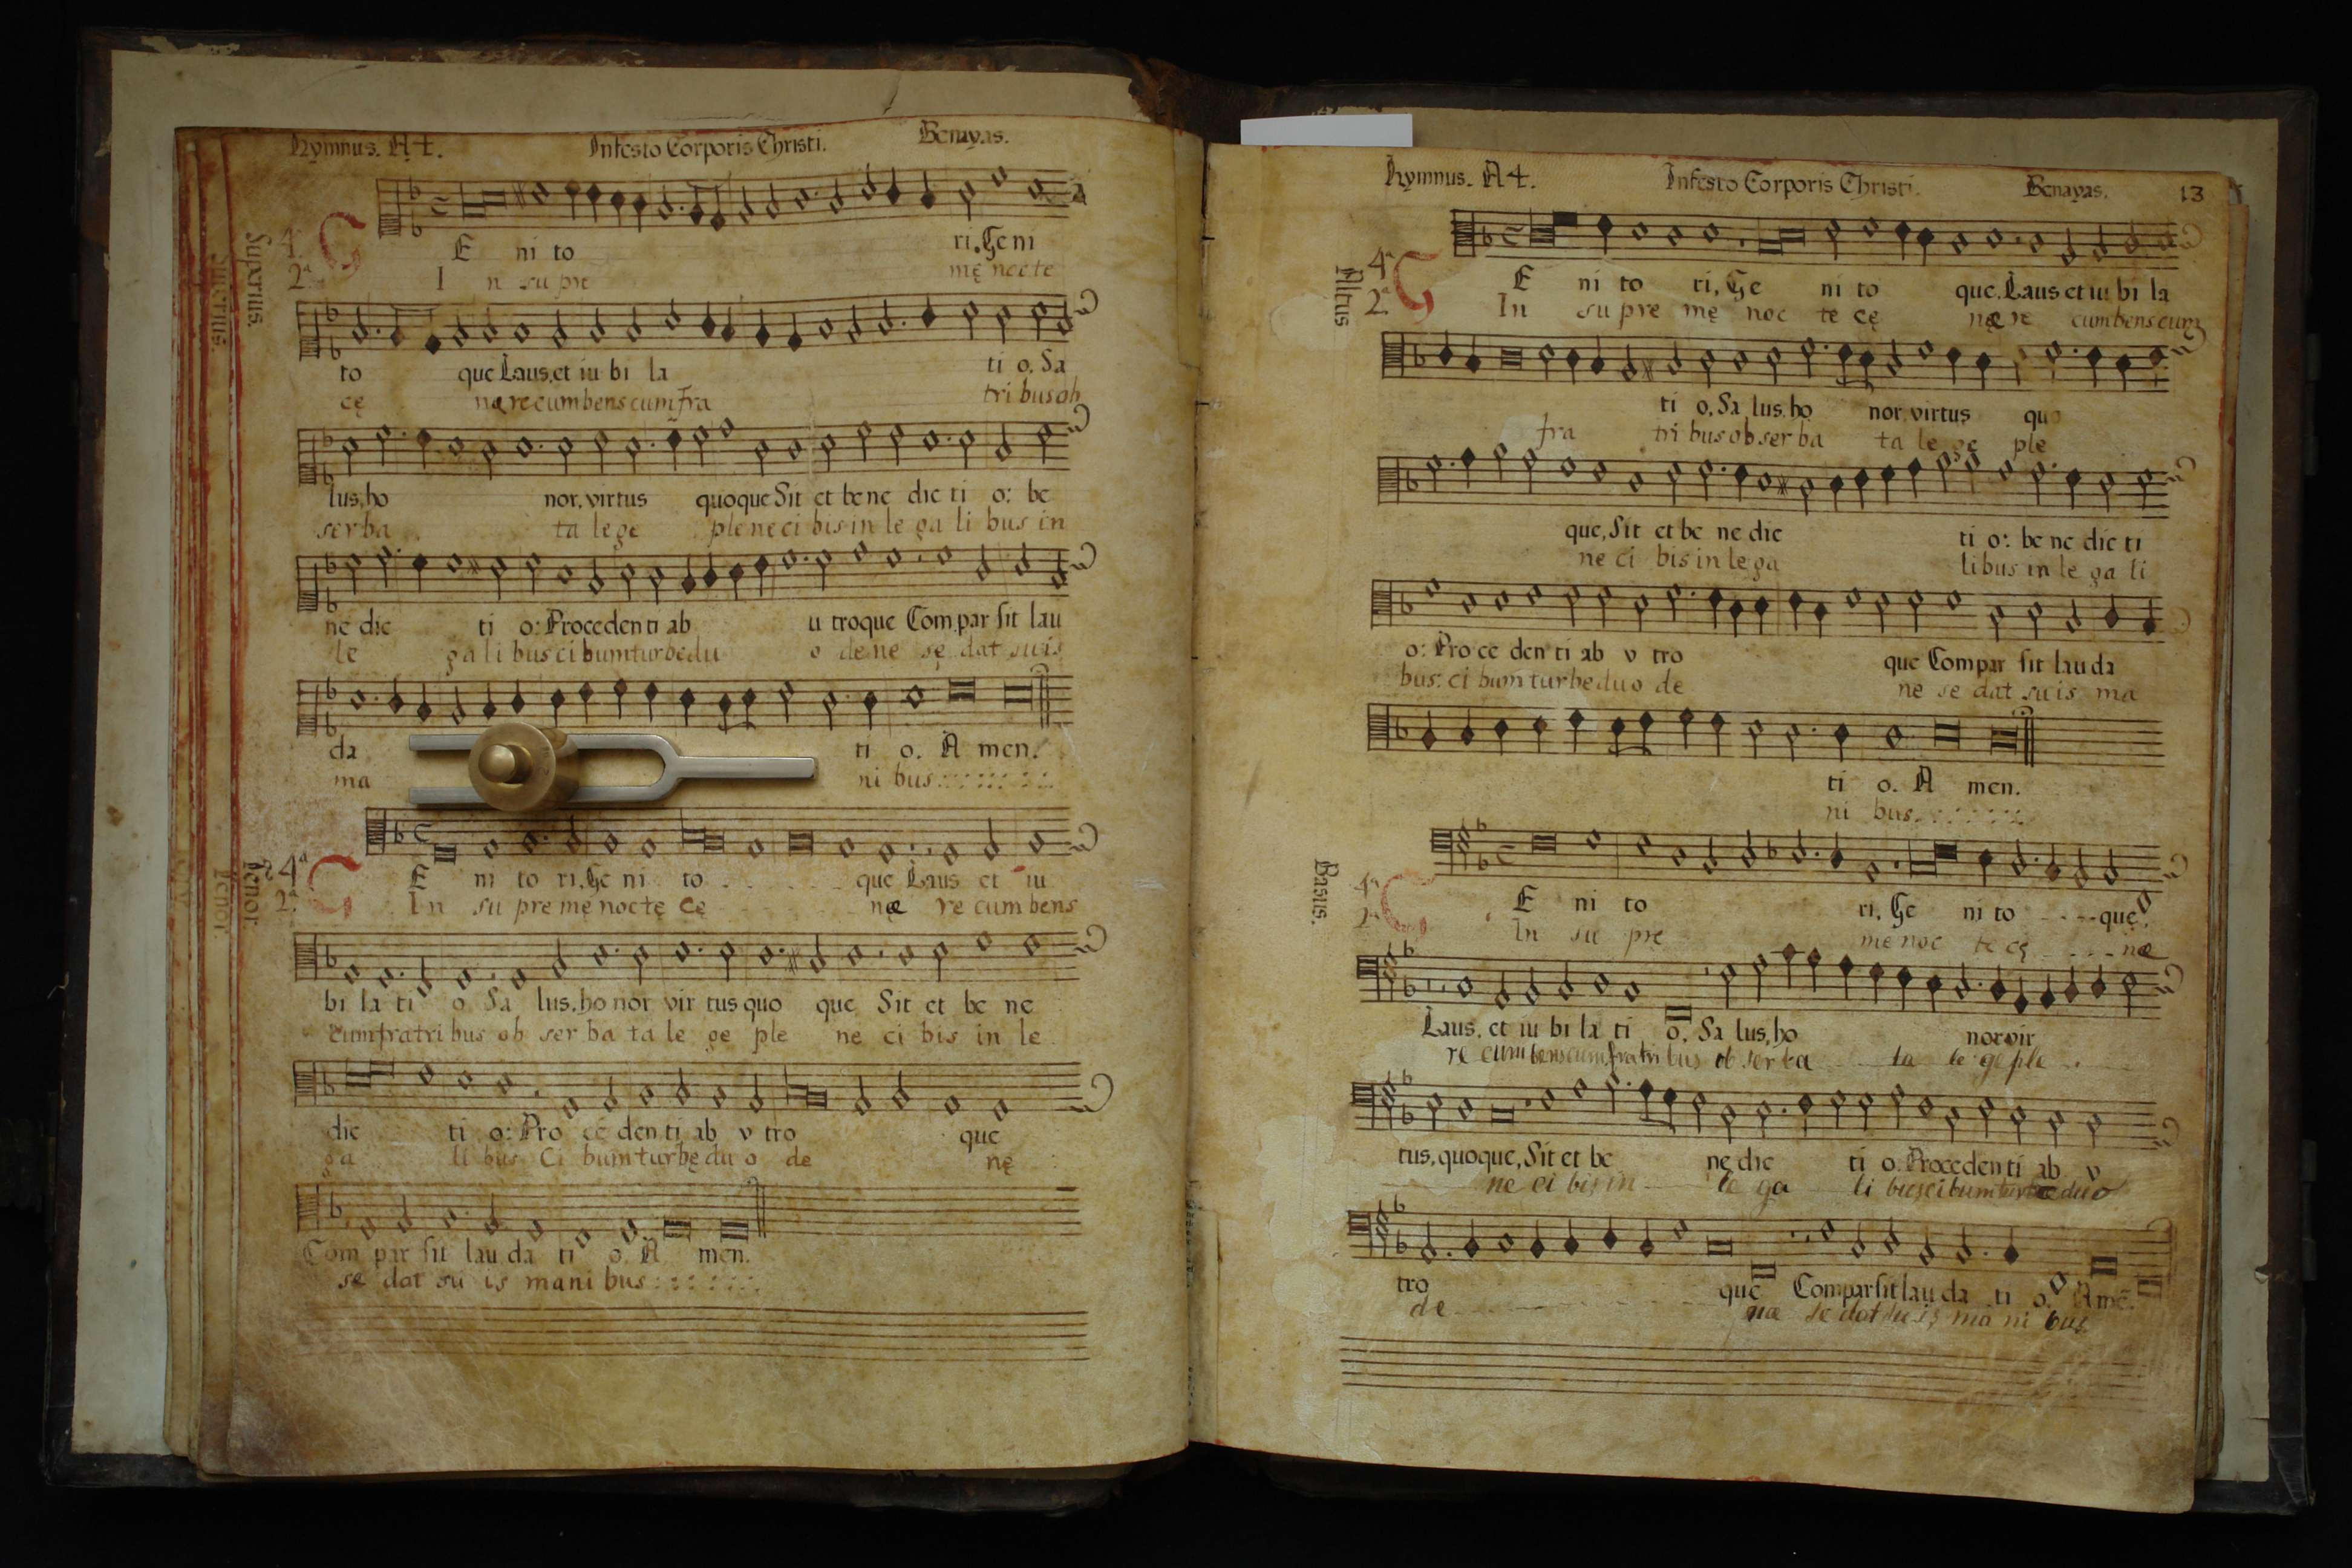 Hymnus. A 4. In festo Corporis Christi. Benayas.
Superius.
4ª GE ni to ri, Ge ni
2ª In su pre mę nocte
to que Laus, et iu bi la ti o, Sa
cę nærecumbens cum fra tri bus ob
lus, ho nor, virtus quoque Sit et bene dic ti o: be
ser ba ta le ge ple ne ci bis in le ga li bus in
ne dic ti o: Procedenti ab u troque Compar sit lau
le ga li bus cibum turbę du o de ne sę dat suis
da ti o. A men.
ma ni bus
Tenor.
4ª GE ni to ri, Ge ni to que Laus et iu
2ª In su pre mę noctę cę næ re cum bens
bi la ti o Sa lus, ho nor vir tus quo que Sit et be ne
cum fratri bus ob ser ba ta le ge ple ne ci bis in le
dic ti o: Pro ce den ti ab v tro que
ga li bus Ci bum turbę du o de nę
Com par sit lau da ti o. A men.
se dat su is mani bus
Hymnus. A 4. In festo Corporis Christi. Benayas. 13
Altus
4ª GE ni to ri, Ge ni to que, Laus et iu bi la
2ª In su pre mę noc te cę næ re cumbens cum
ti o, Sa lus, ho nor, virtus quo
fra tri bus ob ser ba ta le ge ple
que, Sit et be ne dic ti o: be ne dic ti
ne ci bis in le ga li bus in le ga li
o: Pro ce den ti ab v tro que Compar sit lau da
bus: ci bum turbe du o de ne se dat su is ma
ti o. A men.
ni bus
Basus.
4ª GE ni to ri, Ge ni to que,
2ª In su pre me noc te cę næ
Laus, et iu bi la ti o, Sa lus, ho nor vir
re cum bens cum fratri bus ob ser ba ta le ge ple
tus, quoque, Sit et be ne dic ti o. Procedenti ab v
ne ci bis in le ga li bus cibum turbæ duo
tro que Compar sit lau da ti o. A mē.
de næ se dat su is ma ni bus